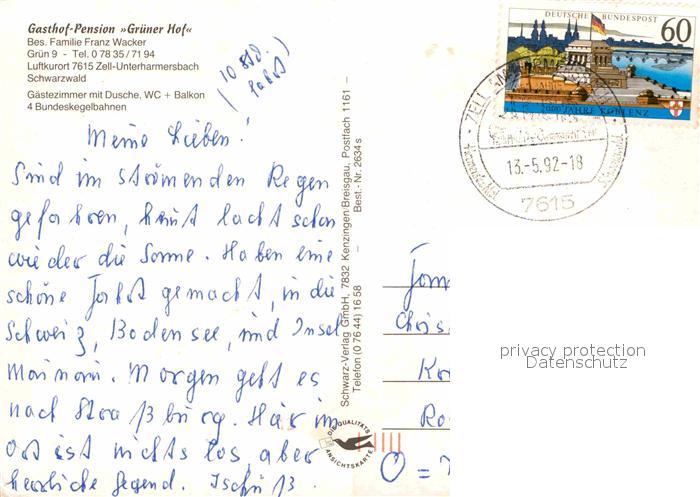 Gasthof-Pension »Grüner Hof«
Bes. Familie Franz Wacker
Grün 9 - Tel. 0 78 35 / 71 94
Luftkurort 7615 Zell-Unterharmersbach
Schwarzwald
Gästezimmer mit Dusche, WC + Balkon
4 Bundeskegelbahnen
Meine Lieben!
Sind im strömenden Regen
gefahren, heut lacht schon
wieder die Sonne. Haben eine
schöne Fahrt gemacht, in die
Schweiz, Bodensee, und Insel
Mainau. Morgen geht es
nach Straßburg. Hier im
Ort ist nichts los, aber
herrliche Gegend. Tschüß.
Schwarz-Verlag GmbH, 7832 Kenzingen/Breisgau, Postfach 1161 -
Telefon (0 76 44) 16 58 - Best.-Nr. 2634 s
DIE QUALITÄTS
ANSICHTSKARTE
DEUTSCHE BUNDESPOST
60
2000 JAHRE KOBLENZ
ZELL AM
13.-5.92-18
7615
privacy protection
Datenschutz